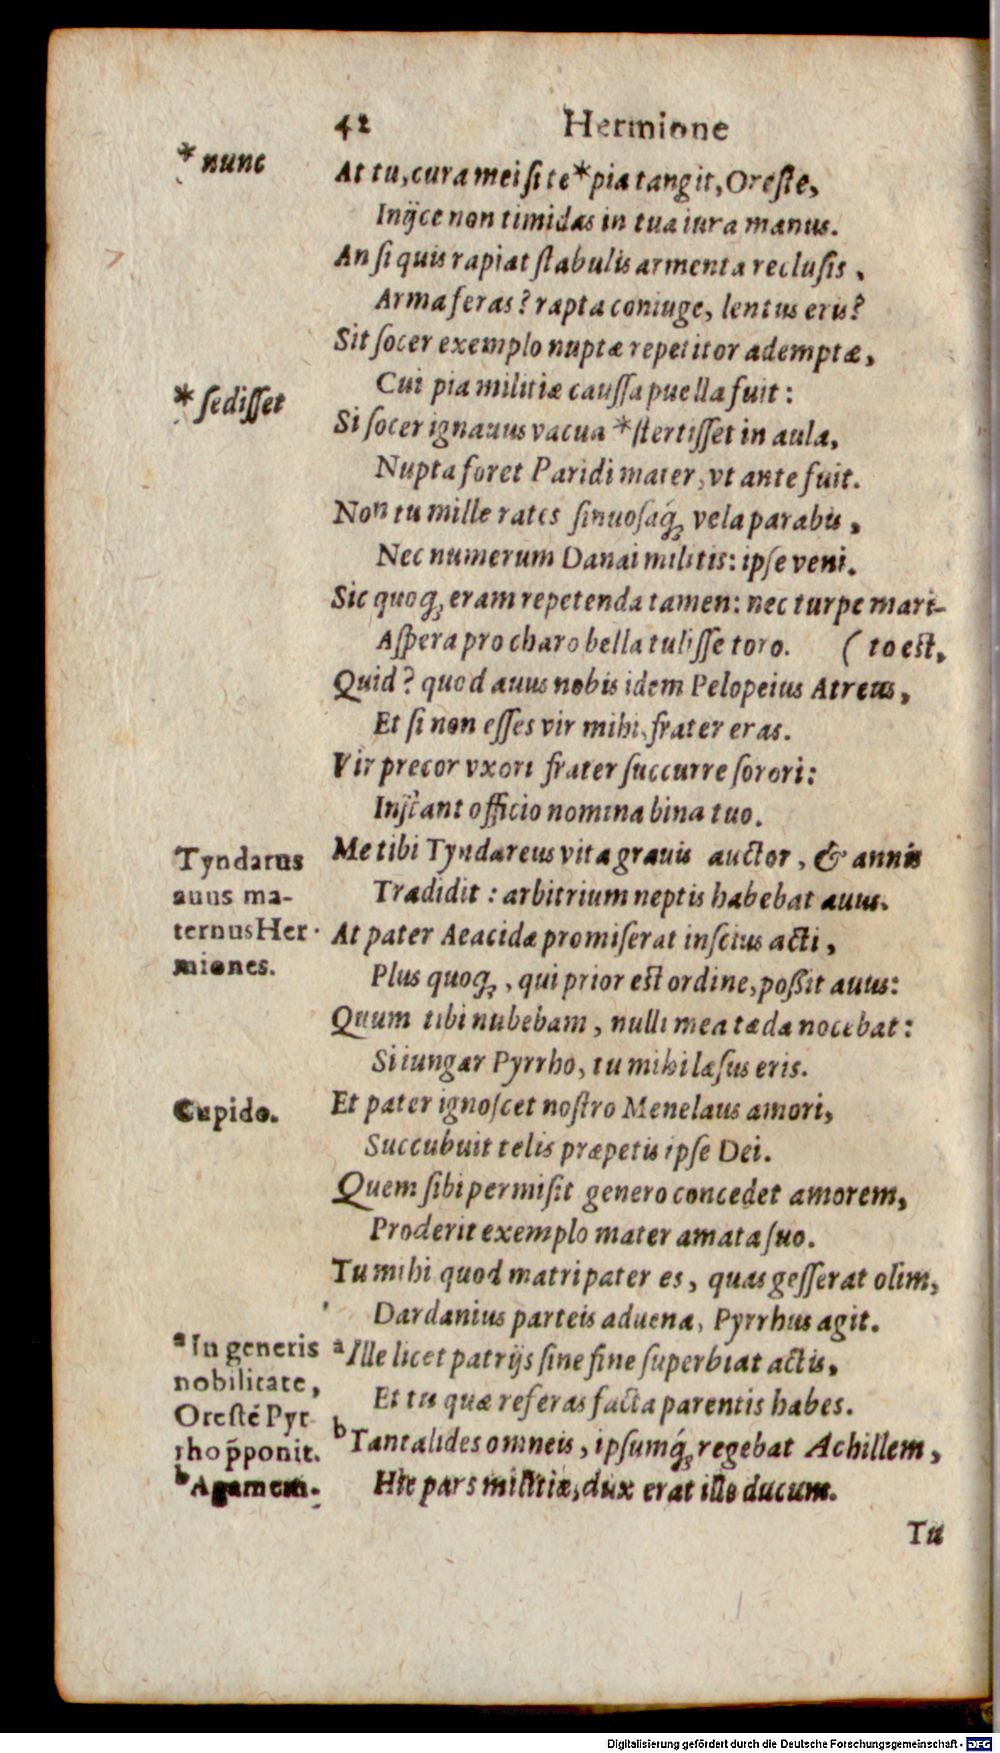 42 Hermione
* nunc
At tu, cura mei si te * pia tangit, Oreste,
Inijce non timidas in tua iura manus.
An si quis rapiat stabulis armenta reclusis,
Arma feras? rapta coniuge, lentus eris?
Sit socer exemplo nuptæ repetitor ademptæ,
Cui pia militiæ caussa puella fuit:
* sedisset
Si socer ignauus vacua * stertisset in aula,
Nupta foret Paridi mater, vt ante fuit.
Non tu mille rates sinuosaq́; vela parabis,
Nec numerum Danai militis: ipse veni.
Sic quoq; eram repetenda tamen: nec turpe mari-
Aspera pro charo bella tulisse toro. (to est,
Quid? quod auus nobis idem Pelopeius Atreus,
Et si non esses vir mihi, frater eras.
Vir precor vxori frater succurre sorori:
Instant officio nomina bina tuo.
Tyndarus
auus ma-
ternus Her
miones.
Me tibi Tyndareus vita grauis auctor, & annis
Tradidit: arbitrium neptis habebat auus.
At pater Aeacidæ promiserat inscius acti,
Plus quoq;, qui prior est ordine, possit auus:
Quum tibi nubebam, nulli mea tæda nocebat:
Si iungar Pyrrho, tu mihi læsus eris.
Cupido.
Et pater ignoscet nostro Menelaus amori,
Succubuit telis præpetis ipse Dei.
Quem sibi permisit genero concedet amorem,
Proderit exemplo mater amata suo.
Tu mihi quod matri pater es, quas gesserat olim,
Dardanius parteis aduena, Pyrrhus agit.
a In generis
nobilitate,
Oresté Pyr
rho p̄ponit.
b Agamem.
a Ille licet patrijs sine fine superbiat actis,
Et tu quæ referas facta parentis habes.
b Tantalides omneis, ipsumq́; regebat Achillem,
Hic pars militiæ, dux erat ille ducum.
Tu
Digitalisierung gefördert durch die Deutsche Forschungsgemeinschaft - DFG